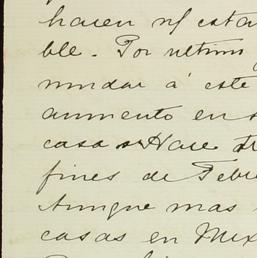 hacen
ble. Por ultimo
mudar á este
aumento en
casa. Hace
fines de Febre
Aunque mas
casas en Mex